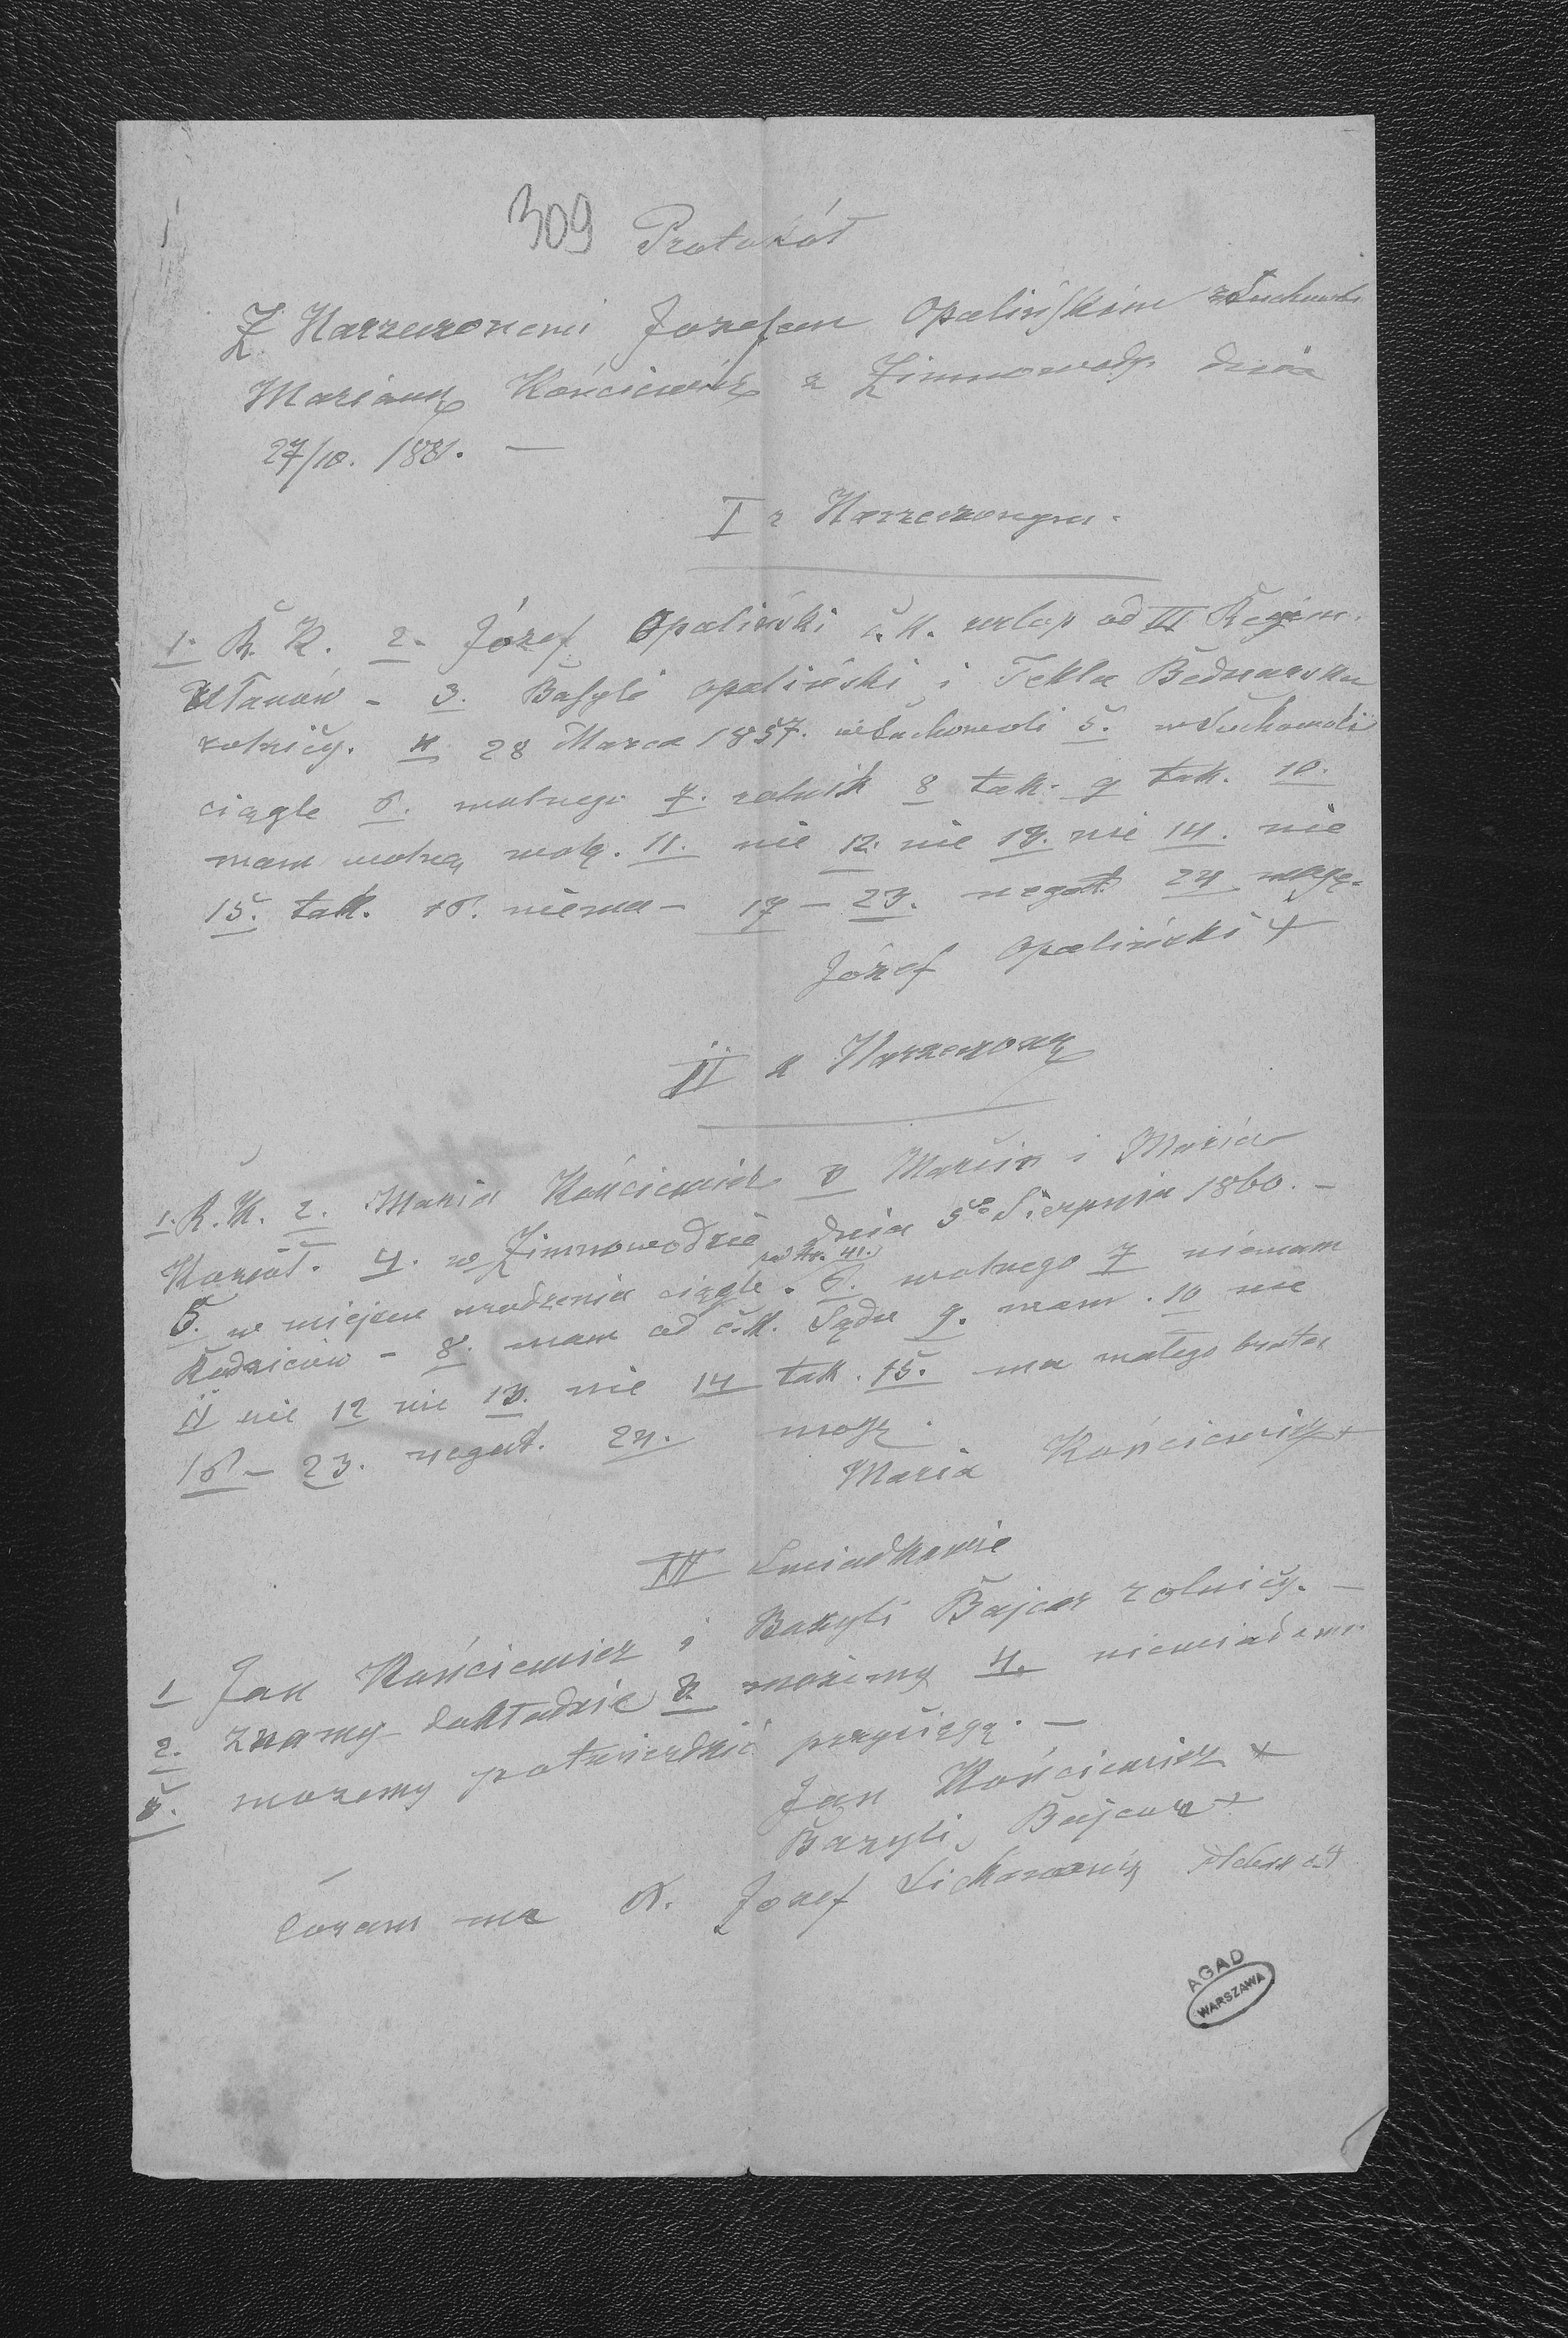 309 Protokół
Z Narzeczonemi Jozefem Opalińskim z Suchowoli
Marianną Kończewicz z Zimnowody dnia
27/10. 1881. —
I z Narzeczonym.
1. R. K. 2. Józef Opaliński c. k. urlop od III Regim.
Ułanów – 3. Basyli Opaliński i Tekla Bednarska
rolnicy. 4 28 Marca 1857. w Suchowoli 5. w Suchowoli
ciągle 6. wolnego 7. rolnik 8 tak. 9 tak. 10.
mam wolną wolę. 11. nie 12. nie 13. nie 14. nie
15. tak. 16. niema – 17 – 23. negat. 24 mogę.
Józef Opaliński +
II z Narzeczoną
1. R. K. 2. Maria Kończewicz 3 Marcin i Maria
4. w Zimnowodzie dnia 5go Sierpnia 1860. –
pod Nr. 41.
5. w miejscu urodzenia ciągle. 6. wolnego 7 niemam
Rodziców – 8. mam od c. k. Sądu 9. mam. 10 nie
11 nie 12 nie 13. nie 14 tak. 15. ma małego brata
16 – 23. negat. 24. mogę.
Maria Kończewicz +
III Świadkowie
1 Jan Kończewicz i Bazyli Bajcar rolnicy. —
2. znamy dokładnie 3. możemy 4. niewiadomo
5. mozemy potwierdzić przysięgą. —
Jan Kończewicz +
Bazyli Bajcar +
Coram me X. Jozef
AGAD
WARSZAWA